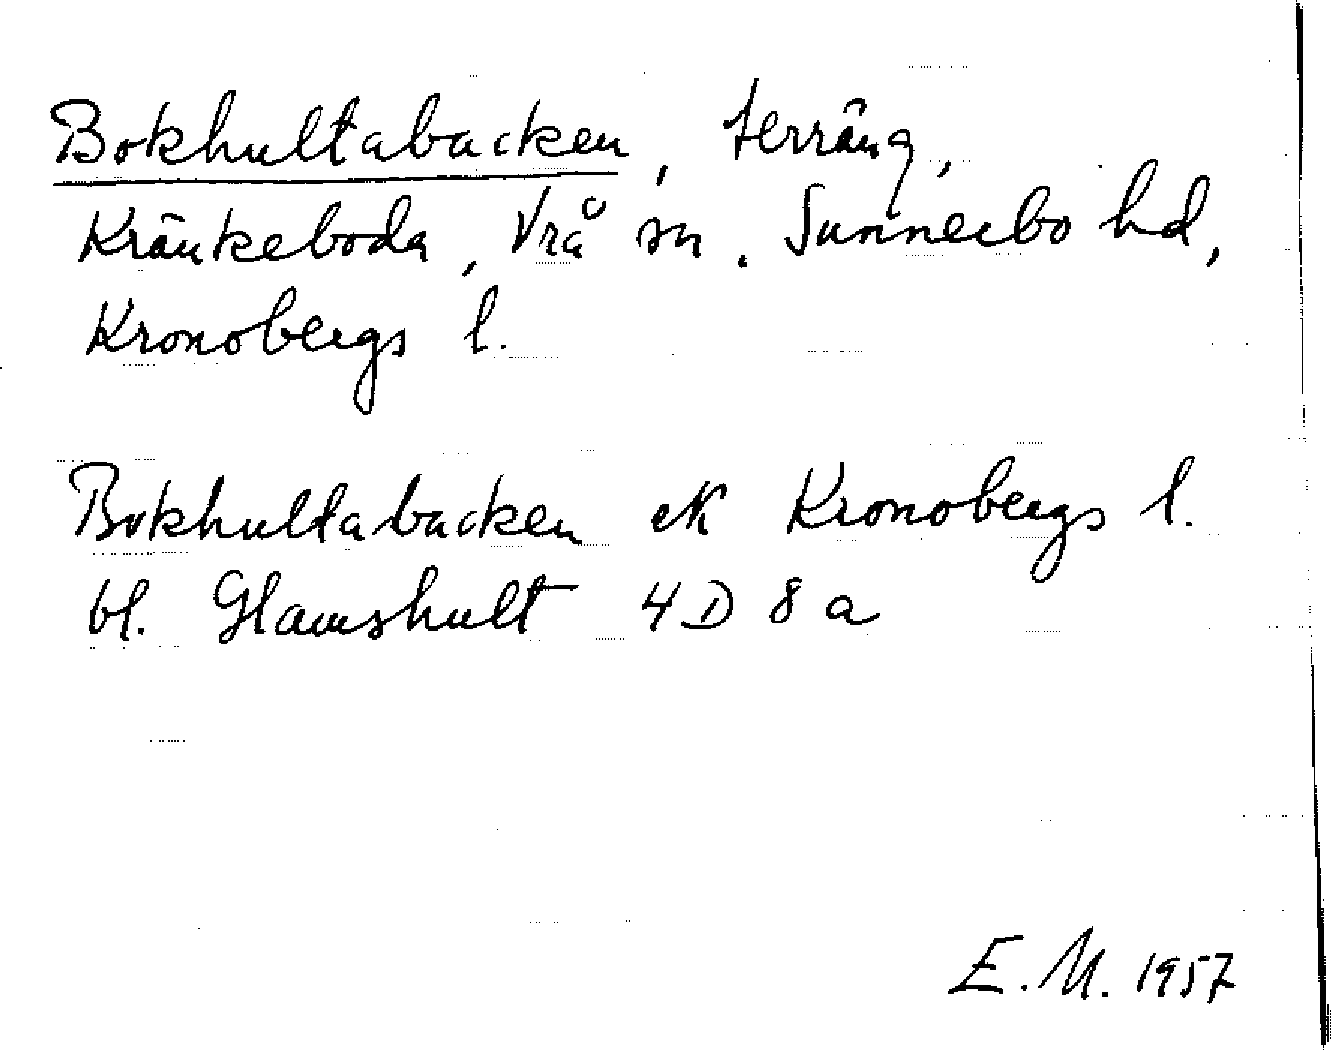 Bokhultabacken, terräng,
Kränkeboda, Vrå sn. Sunnerbo hd,
Kronobergs l.
Bokhultabacken ek Kronobergs l.
bl. Glamshult 4D 8 a
E.M. 1957